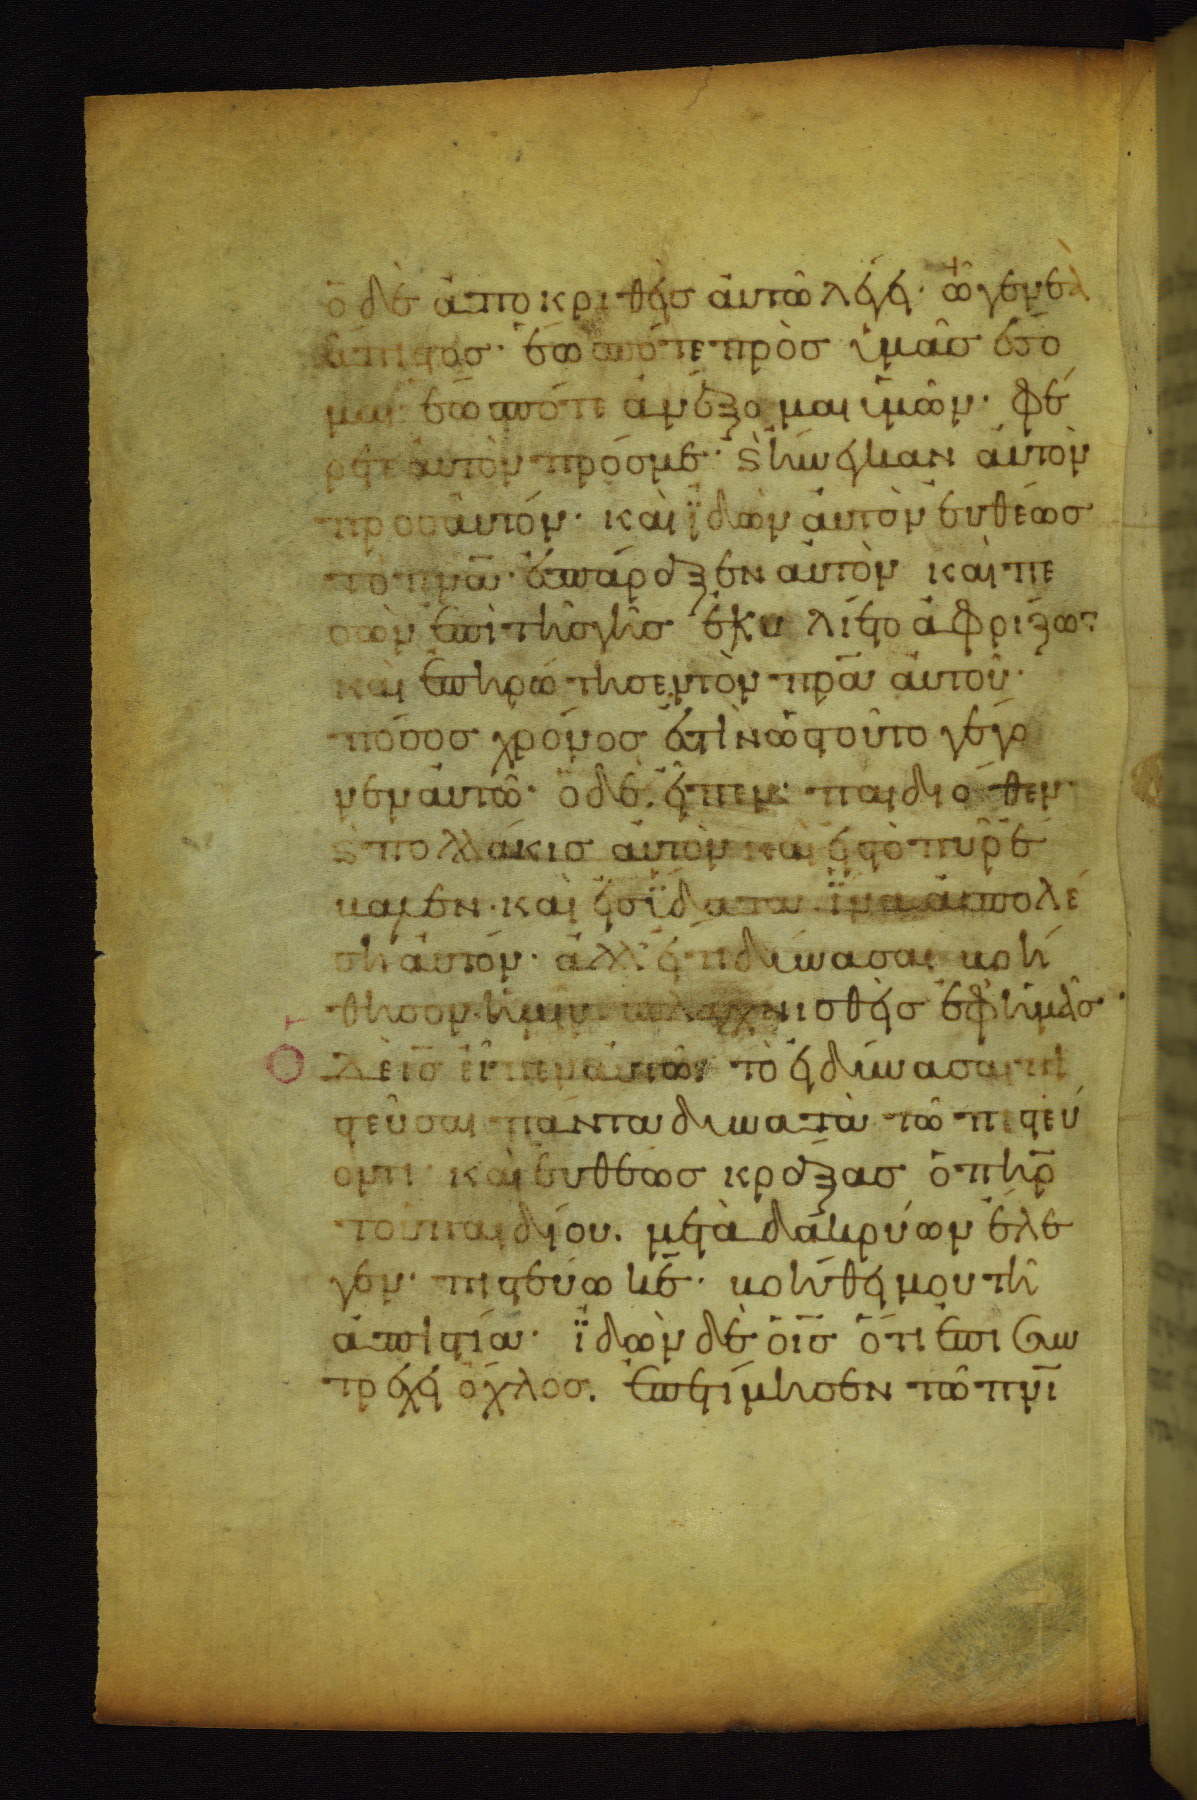 ὁ δὲ ἀποκριθεὶς αὐτῶ λέγει· ὦ γενεὰ
ἄπιστος· ἕως πότε πρὸς ὑμᾶς ἔσο
μαι· ἕως πότε ἀνέξομαι ὑμῶν· φέ
ρετε αὐτὸν πρός με· ϗ ἤνεγκαν αὐτὸν
πρὸς αὐτόν· καὶ ἰ̈δὼν αὐτὸν εὐθέως
τὸ πνα̅· ἐσπάραξεν αὐτὸν καὶ πε
σὼν ἐπὶ τῆς γῆς ἐκυλίετο ἀφρίζων·
καὶ ἐπηρώτησεν τὸν πρα̅ αὐτοῦ·
πόσος χρόνος ἐστὶν ὡς τοῦτο γέγο
νεν αὐτῶ· ὁ δὲ εἶπεν· παιδιόθεν·
ϗ πολλάκις αὐτὸν καὶ εἰς τὸ πῦρ ἔ
βαλεν· καὶ εἰς ὕ̈δατα ἵ̈να ἀπολέ
ση αὐτόν· ἀλλ' εἴ τι δύνασαι βοή
θησον ἡμῖν σπλαγχνισθεὶς ἐφ' ἡμᾶς·
Ὁ δὲ ις̅ εἶπεν αὐτῶ· τὸ εἰ δύνασαι πι
στεῦσαι πάντα δυνατὰ τῶ πιστεύ
οντι· καὶ εὐθέως κράξας ὁ πηρ̅
τοῦ παιδίου. μετὰ δακρύων ἔλε
γεν· πιστεύω κε̅· βοήθει μου τῆ
ἀπιστία· ἰ̈δὼν δὲ ὁ ις̅ ὅτι ἐπισυν
τρέχει ὄχλος. ἐπετίμησεν τῶ πνι̅